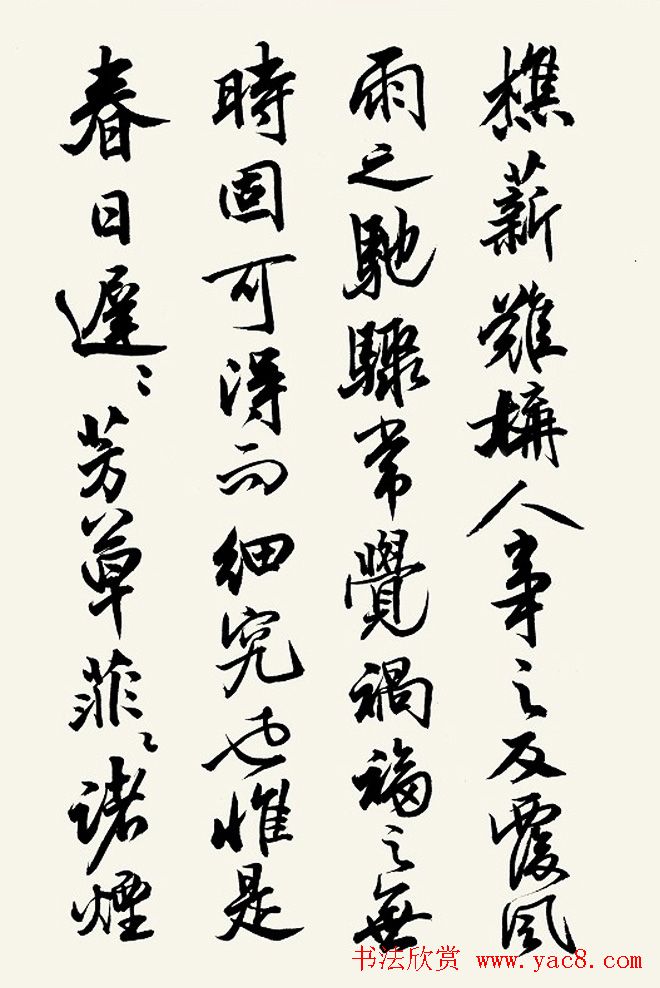 樵薪難構人事之反覆風
雨之馳驟常覺禍福之無
時固可得而細究也惟是
春日遲々芳草菲々諸煙
书法欣赏 www.yac8.com